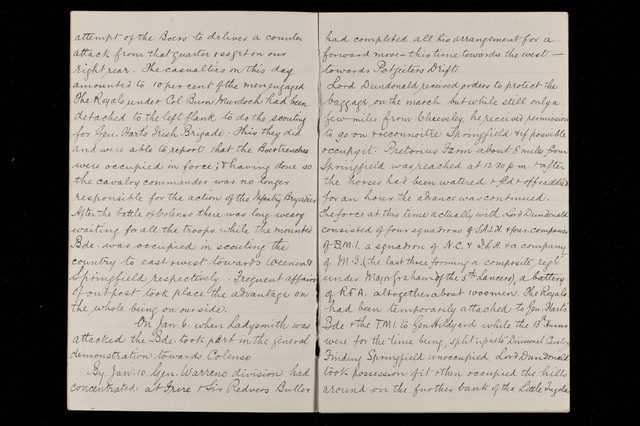 attempt of the Boers to deliver a counter
attack from that quarter & so get on our
right rear. The casualties on this day
amounted to 10 per cent of the men engaged
The Royals under Col. Burn Murdoch had been
detached to the left flank to do the scouting
for Gen. Harts Irish Brigade. This they did
and were able to report that the Boer trenches
were occupied in force; & having done so
the cavalry commander was no longer
responsible for the action of the Infantry Brigadier
After the battle of Colenso there was long weary
waiting for all the troops while the mounted
Bde. was occupied in scouting the
country to east & west towards Weenen &
Springfield respectively. Frequent affairs
of outpost took place the advantage on
the whole being on our side.
On Jan 6. when Ladysmith was
attacked the Bde. took part in the general
demonstration towards Colenso
By Jan. 10. Gen. Warrens division had
concentrated at Frere & Sir Redvers Buller
had completed all his arrangement for a
forward move - this time towards the west -
towards Potgeiters Drift.
Lord Dundonald received orders to protect the
baggage on the march but while still only a
few miles from Chieveley he received permission
to go on & reconnoitre Springfield & if possible
occupy it. Pretorius Farm about 8 miles from
Springfield was reached at 12.30 p.m. & after
the horses had been watered & fed & offsaddled
for an hour the advance was continued.
The force at this time actually with Lord Dundonald
consisted of four squadrons of S.A.L.H. & four companies
of B.M.I. a squadron of N.C. & I.L.H. & a company
of M.I. (the last three forming a composite regt.
under Major Graham of the 5th Lancers), a battery
of R.F.A. altogether about 1000 men. The Royals
had been temporarily attached to Gen. Hart's
Bde & the T.M.I. to Gen. Hildyard while the 13th
were for the time being, split up into Divisional Cavalry
Finding Springfield unoccupied Lord Dundonald
took possession of it & then occupied the hills
around on the further bank of the Little Tugela